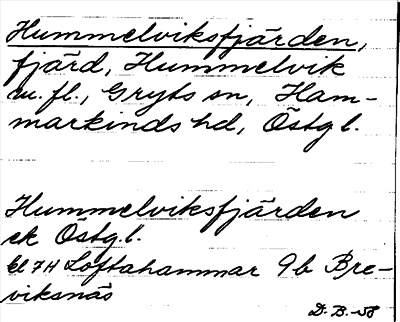 Hummelviksfjärden,
fjärd, Hummelvik
m. fl., Gryts sn, Ham-
markinds hd, Östg l.
Hummelviksfjärden
ek Östg.l.
bl 7H Loftahammar 9b Bre-
viksnäs
D.B.-58